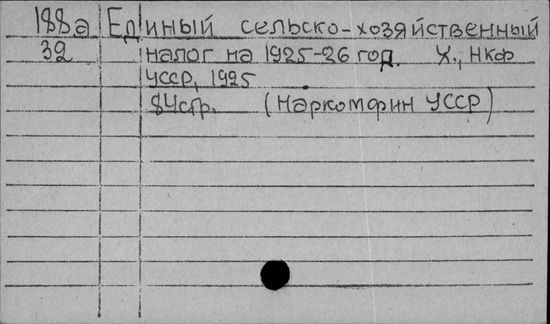 188а Единый сельско-хозяйственный
32 налог на 1925-26 год. Х., НКФ
УССР, 1925.
84стр. (Наркомфин УССР)